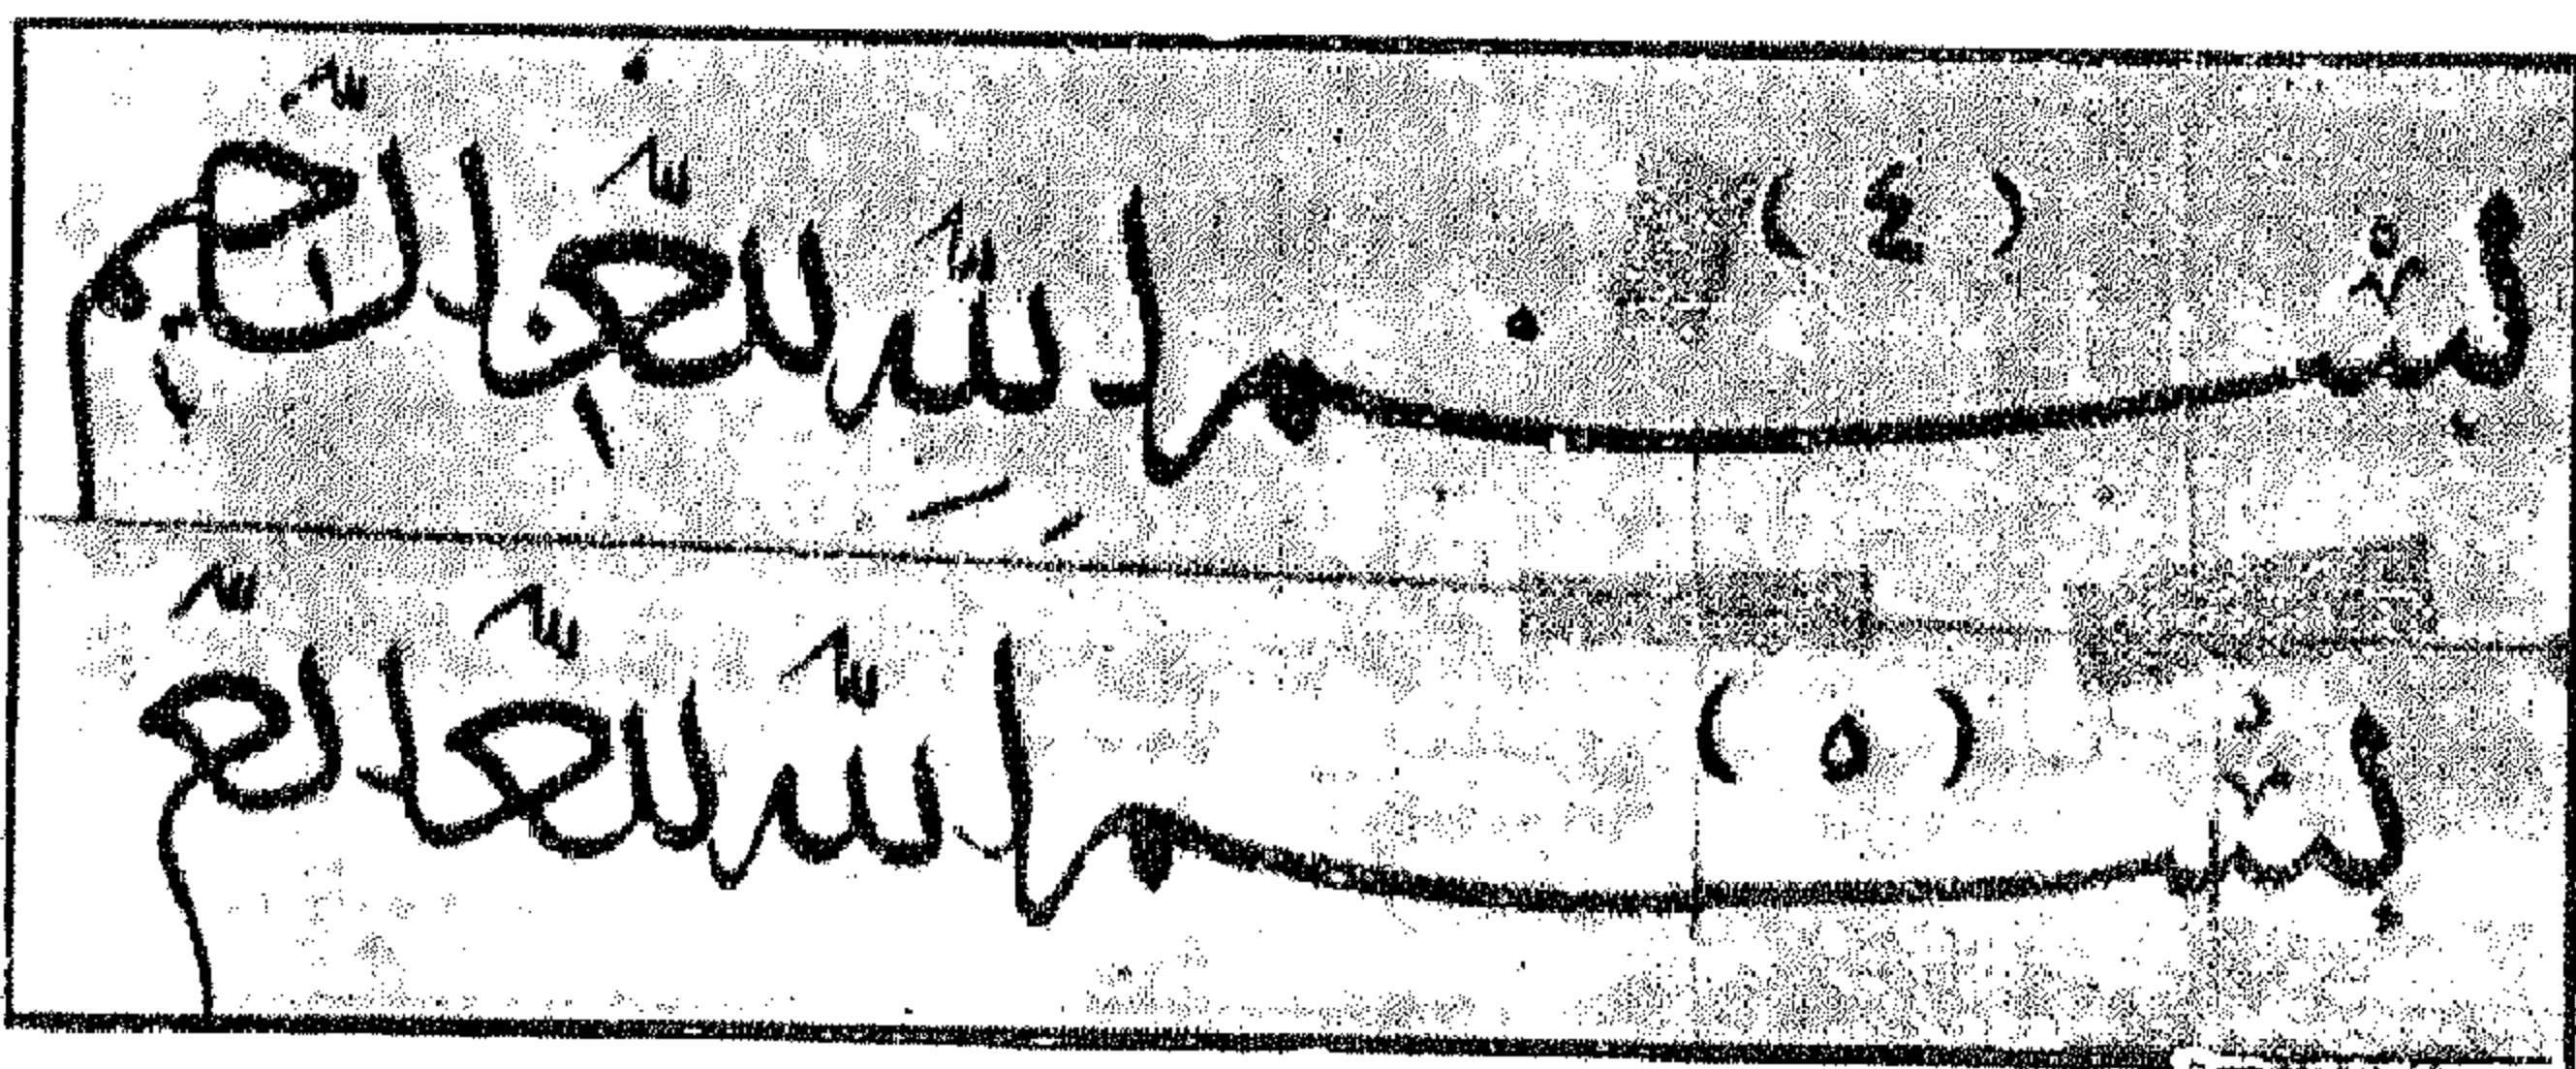 (٤) بسم الله الرحمن الرحيم
(٥) بسم الله الرحمن الرحيم